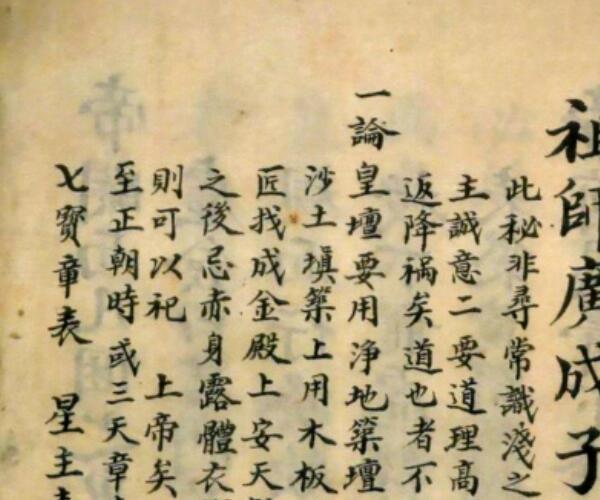 祖師廣成子
此秘非尋常識淺之
主誠意二要道理高
返降禍矣道也者不
一論皇壇要用淨地築壇
沙土填築上用木板
匠找成金殿上安天
之後忌赤身露體衣
則可以祀 上帝矣
至正朝時或三天章
七寶章表 星主